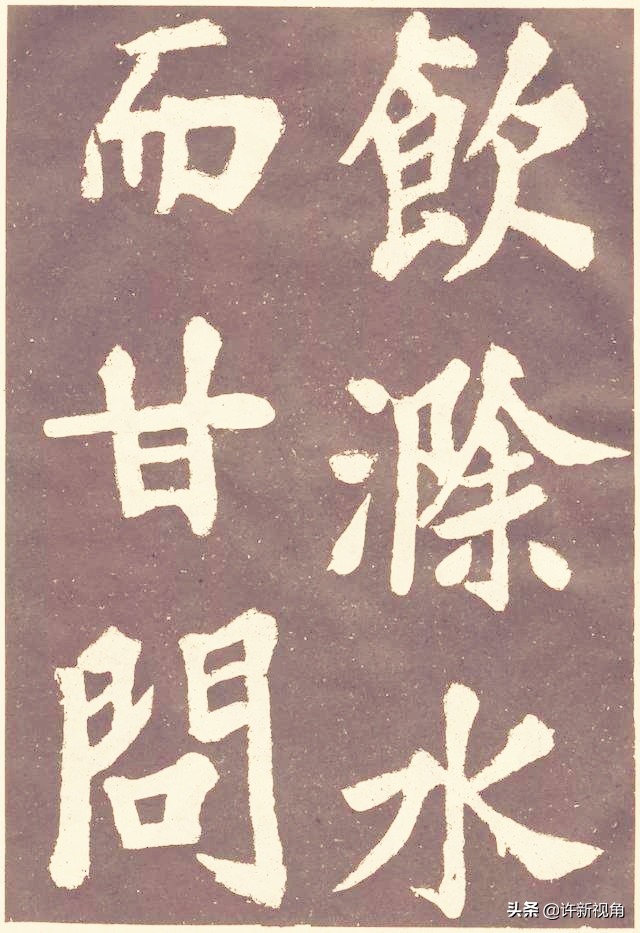 飲滁水
而甘問
头条 @许新视角